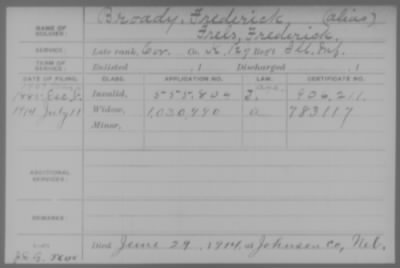 NAME OF SOLDIER: Broady, Frederick, (alias)
Freis, Frederick,
SERVICE: Late rank, Cor. Co. K, 129 Reg't Ill. Inf.
TERM OF SERVICE: Enlisted , 1 Discharged , 1
DATE OF FILING. CLASS. APPLICATION NO. LAW. CERTIFICATE NO.
1885 Dec. Invalid, 555,804 906,211.
1914 July 11 Widow, 1,030,440 783117
Minor,
ADDITIONAL SERVICES:
REMARKS:
Died June 29, 1914, at Johnson Co, Neb.